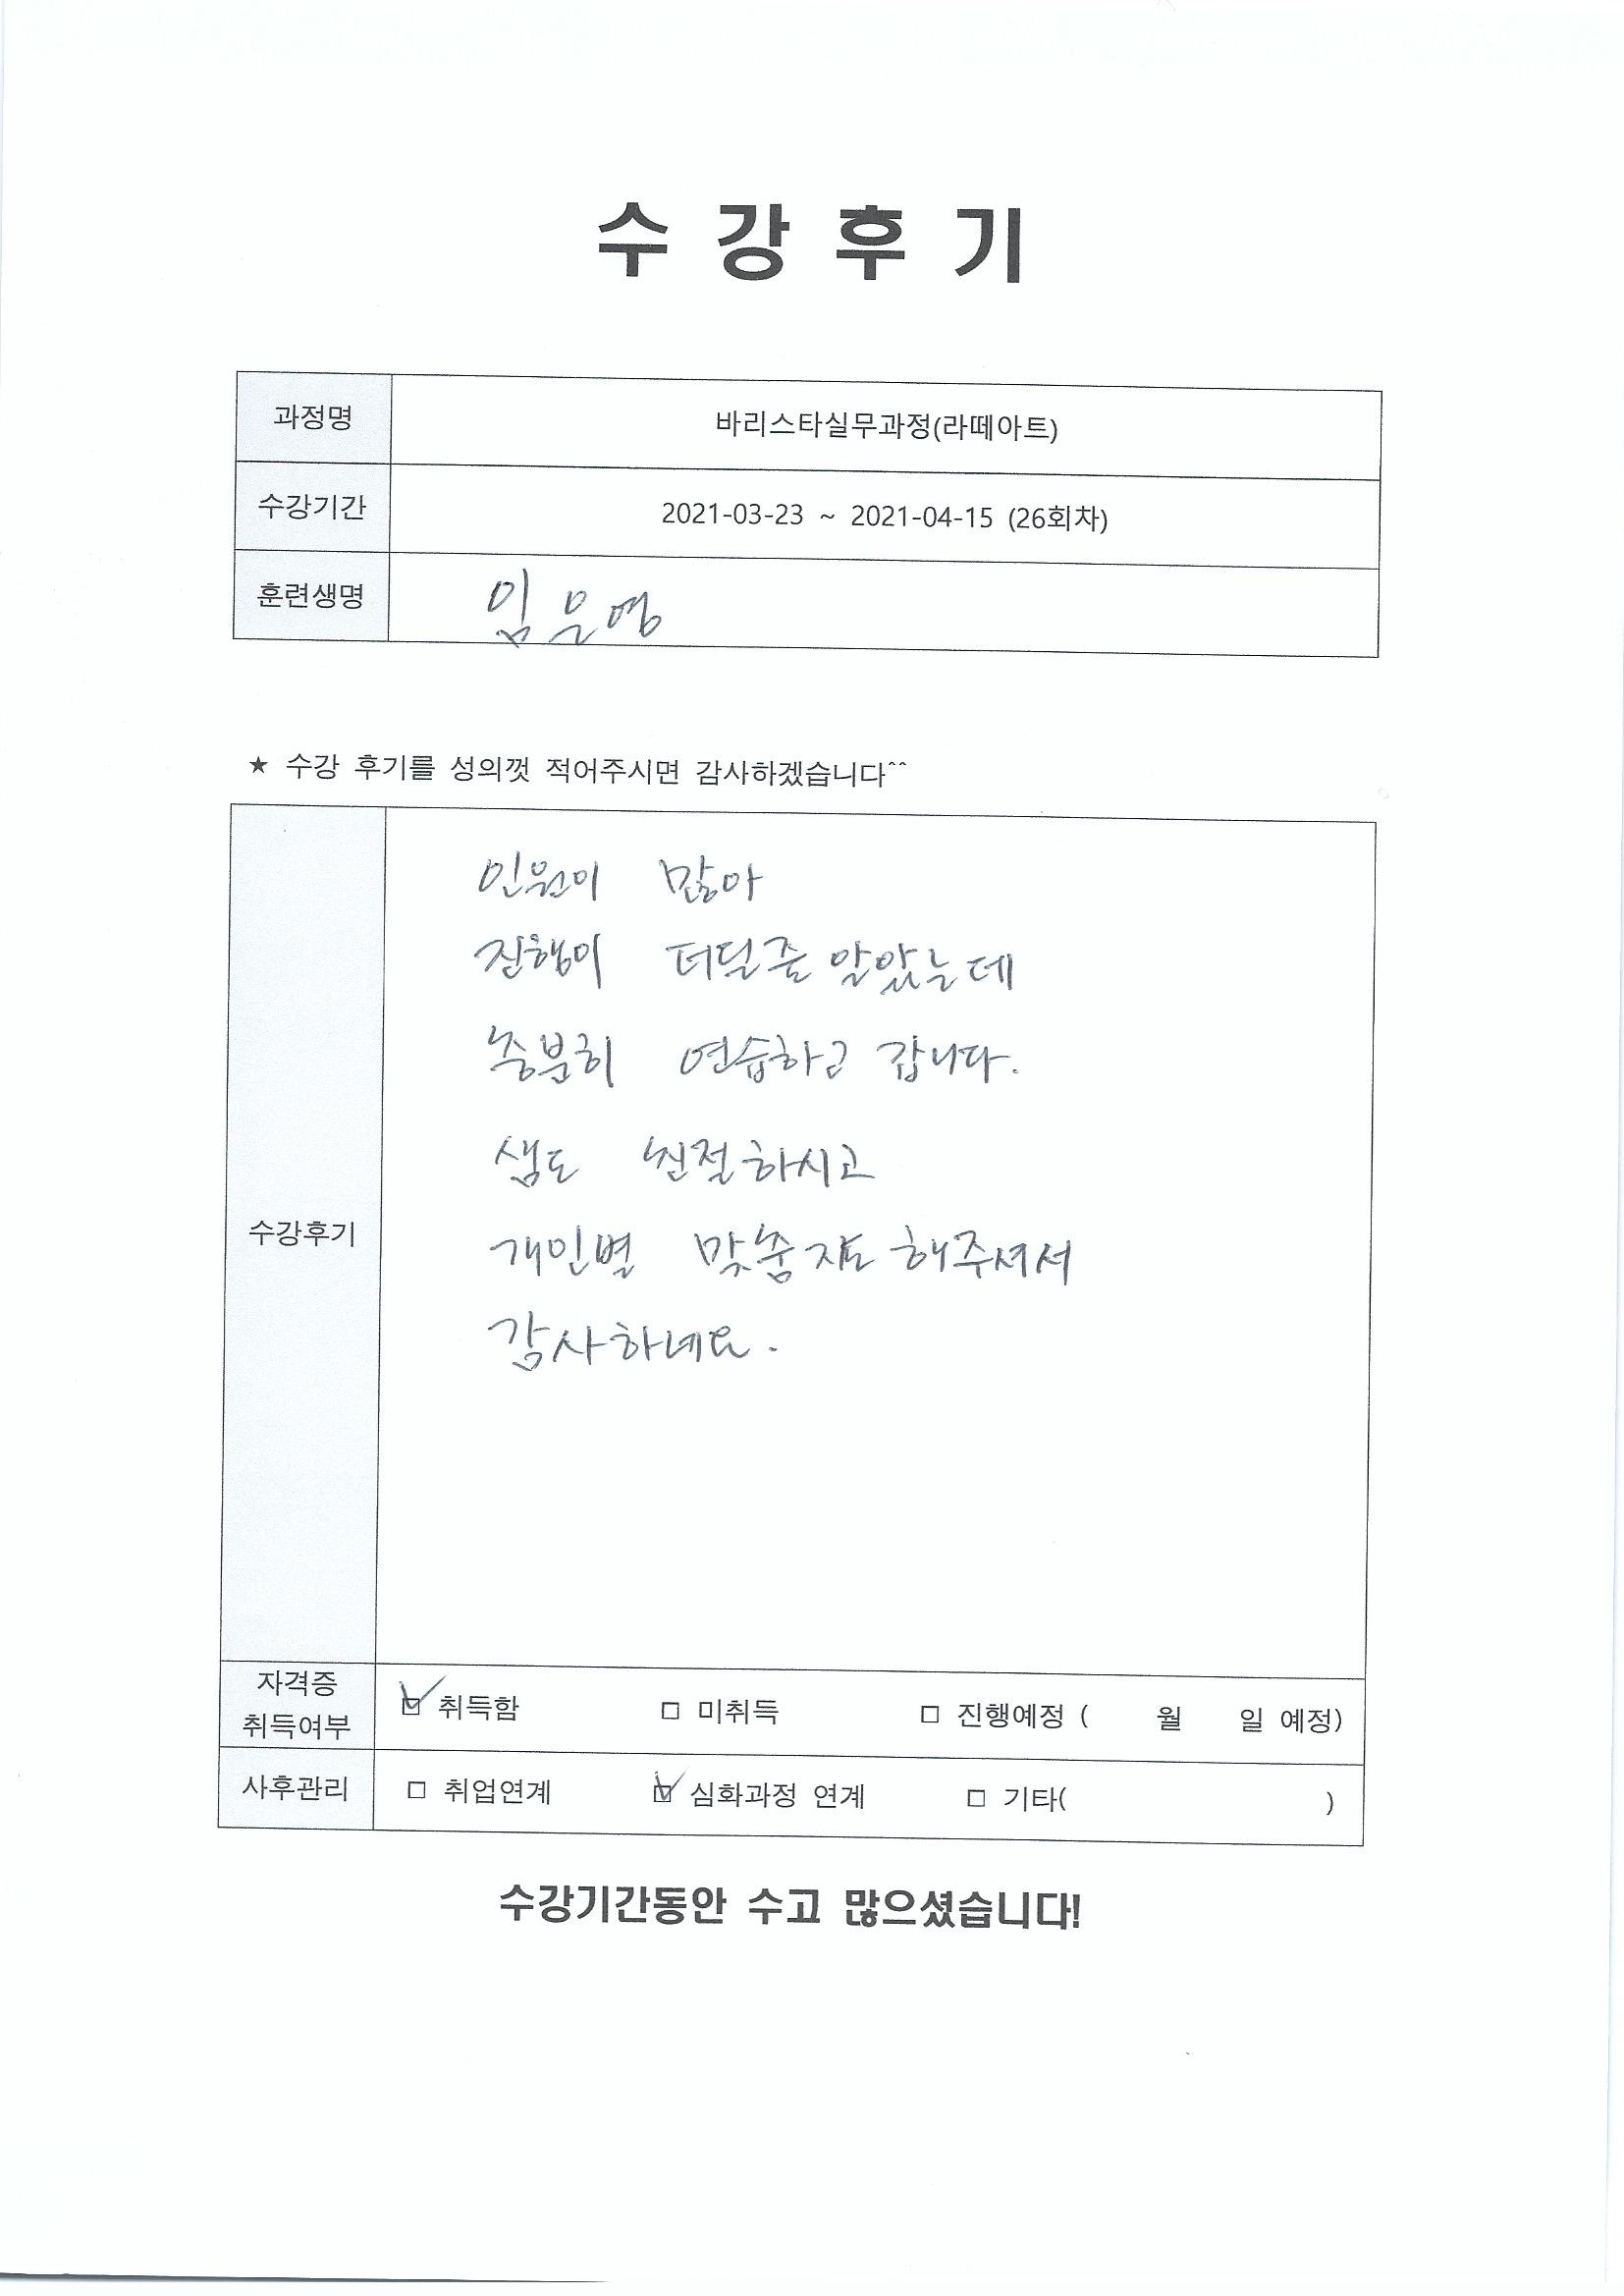 수 강 후 기
과정명 바리스타실무과정(라떼아트)
수강기간 2021-03-23 ~ 2021-04-15 (26회차)
훈련생명 임은영
★ 수강 후기를 성의껏 적어주시면 감사하겠습니다^^
수강후기
인원이 많아
진행이 더딜줄 알았는데
충분히 연습하고 갑니다.
샘도 친절하시고
개인별 맞춤지도 해주셔서
감사하네요.
자격증
취득여부
☑ 취득함 □ 미취득 □ 진행예정 ( 월 일 예정)
사후관리 □ 취업연계 ☑ 심화과정 연계 □ 기타( )
수강기간동안 수고 많으셨습니다!